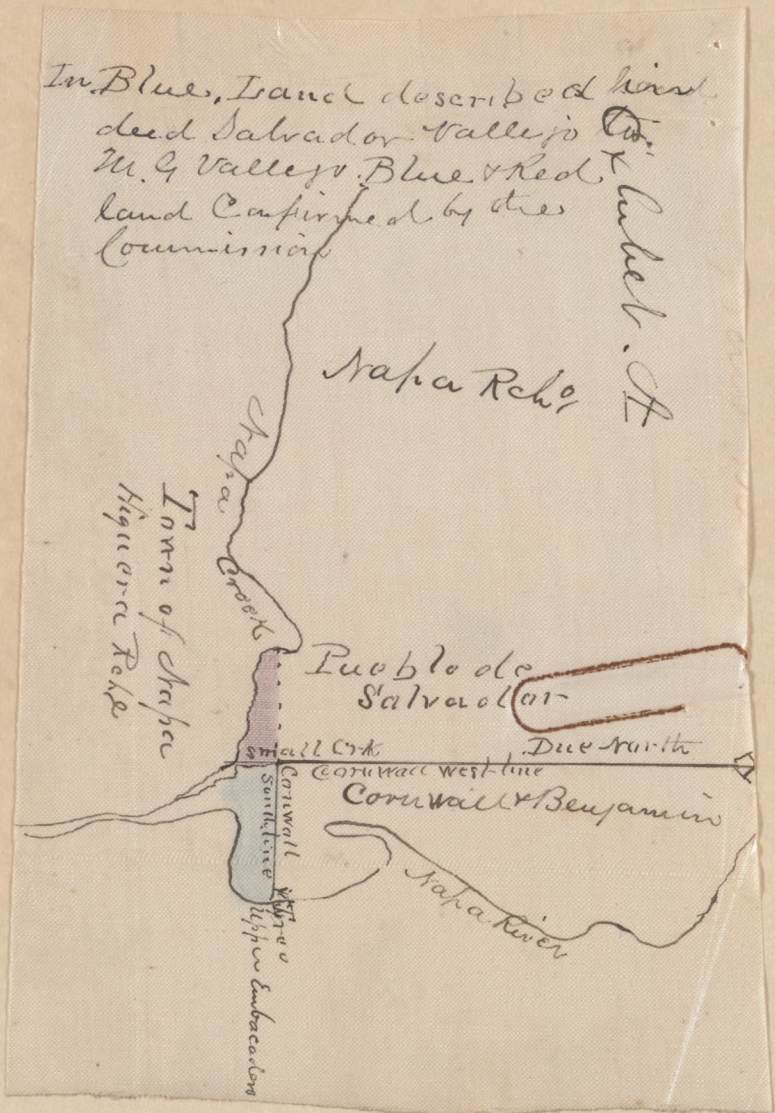 In Blue, Land described
deed Salvador Vallejo to
M. G Vallejo. Blue & Red
land Confirmed by the
Commission
Exhibit. A
Napa Rcho
Napa Creek
Town of Napa
Higuera Rcho
Pueblo de
Salvador
Small Crk
Due North
Cornwall West line
Cornwall & Benjamin
Cornwall
South line
Tree
Upper Embacadero
Napa River